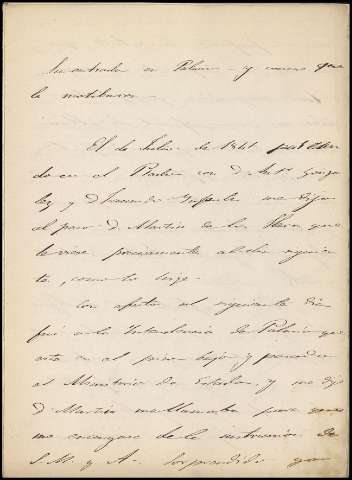 Mi entrada en Palacio - y causas que
la motivaron -
El de Julio de 1841 paseándo
en el Prado con D. Antº Gonza
lez y D. Facundo Infante me dijo
al paso D. Martin de los Heros que
le viese precisamente al dia siguien
te, como lo hize -
Con efecto al siguiente dia
fuí a la Intendencia de Palacio que
está en el piso bajo y procedía
al Ministerio de Estado, y me dijo
D. Martin me llamaba para que
me encargase de la instruccion de
S. M. y A. - Sorprendido yo